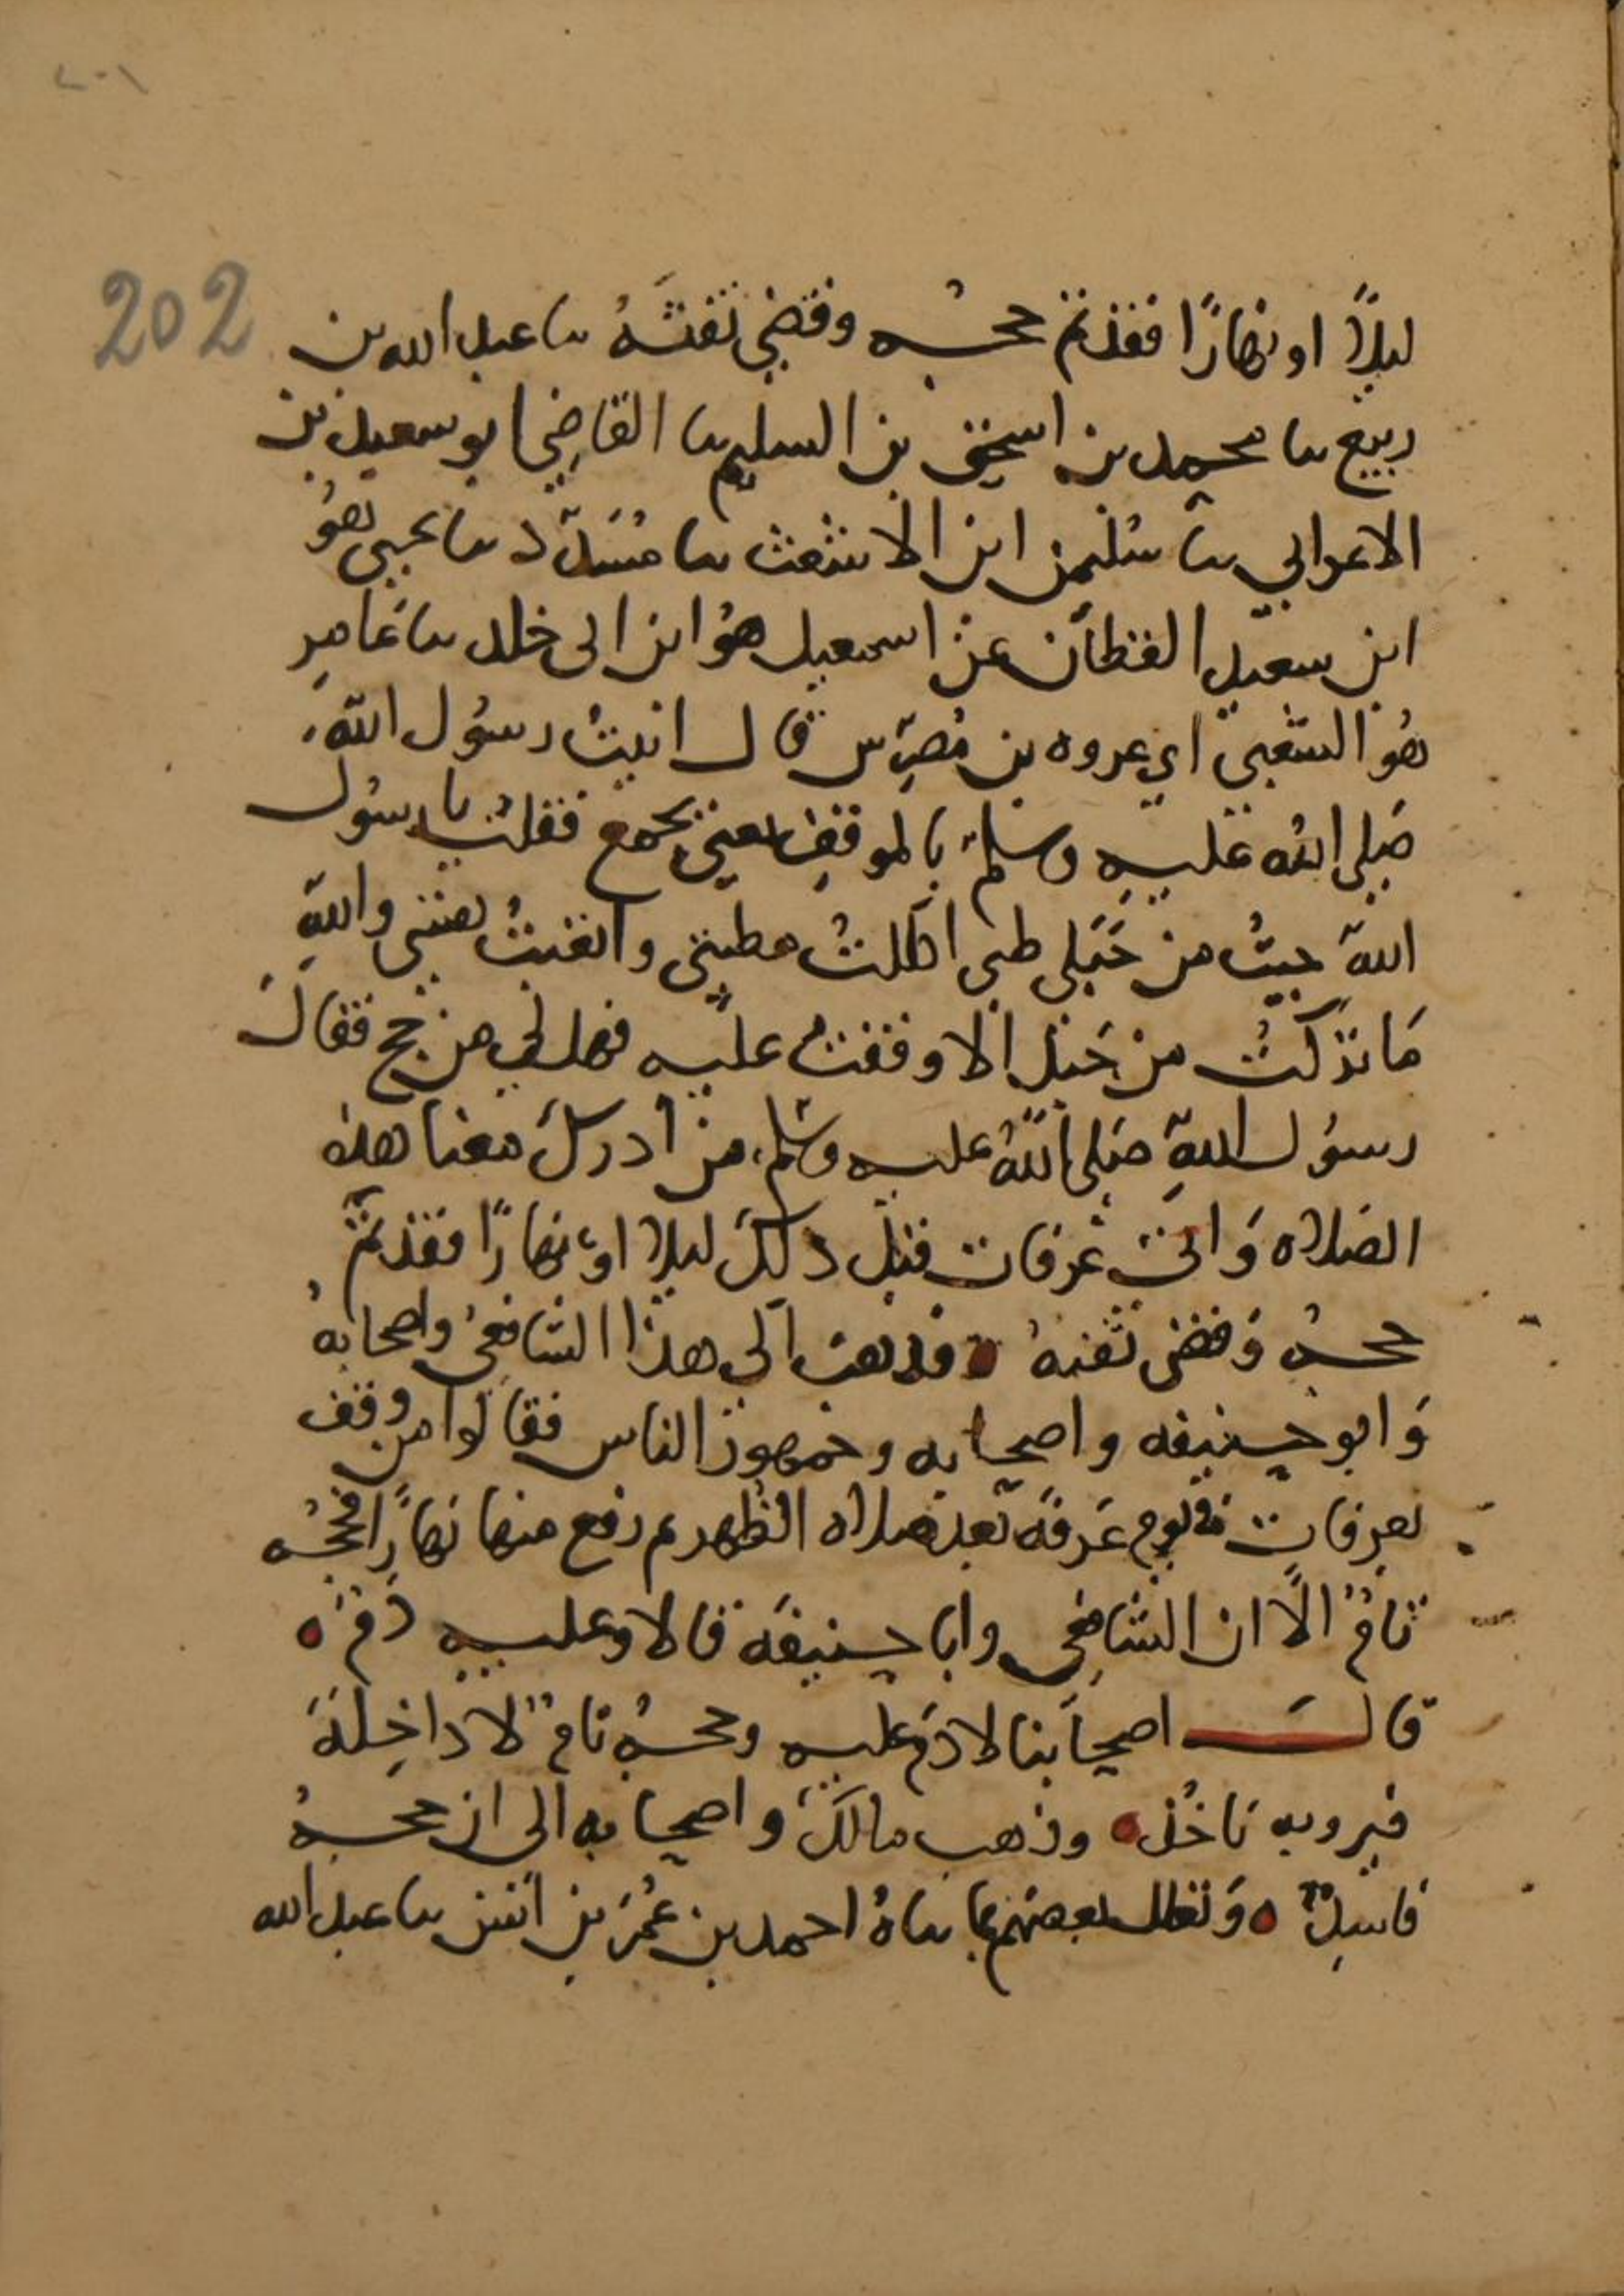 ٢٠١
202
ليلاً او نهارًا فقد تم حجُه وقضى تفثَهُ نا عبد الله بن
ربيع نا محمد بن اسحق بن السليم نا القاضي ابو سعيد بن
الاعرابي نا سُليمن ابن الاشعث نا مُسَدَّد نا يحيى هُو
ابن سعيد القطان عن اسمعيل هُو ابن ابى خلد نا عَامِر
هُو الشعبي اني عروه بن مُضرِّس قال اتيتُ رسُول اللهِ
صَلى اللهُ عَليه وسلم بالموقفِ يعنى بجمع فقلت يا رسُول
اللهِ جيتُ من جَبَلى طى اكللتُ مطيتى واتعبتُ نفسى واللهِ
مَا تركتُ من جَبَل الا وقفت عليه فهل لي من حج فقالَ
رسُول اللهِ صَلى اللهُ عليه وسَلم من ادرك معنا هذه
الصَلاه وَاتى عَرفات قبل ذلكَ ليلا او نهارًا فقد تمَّ
حجُه وَقضى تفثهُ ه فذهبَ الى هذا الشافعىُ واصحابهُ
وَابو حنيفه واصحابه وجمهور الناس فقالوا من وقف
بعرفات في يوم عَرفَه بَعد صلاه الظهر ثم دفع منها نهارًا فحجُه
تامٌ الَّا ان الشافعى وابا حنيفَه قالا وعليه دَمٌ ه
قالَ اصحابنا لا دَم عليه وحجُه تامٌ لا دَاخِلَةَ
فيه وبه نَاخُذ ه وذهب مالكٌ واصحابه الى ان حجهُ
فاسِدٌ ه وَتعلل بعضهم بما ناهُ احمد بن عُمَر بن انس نا عبد الله